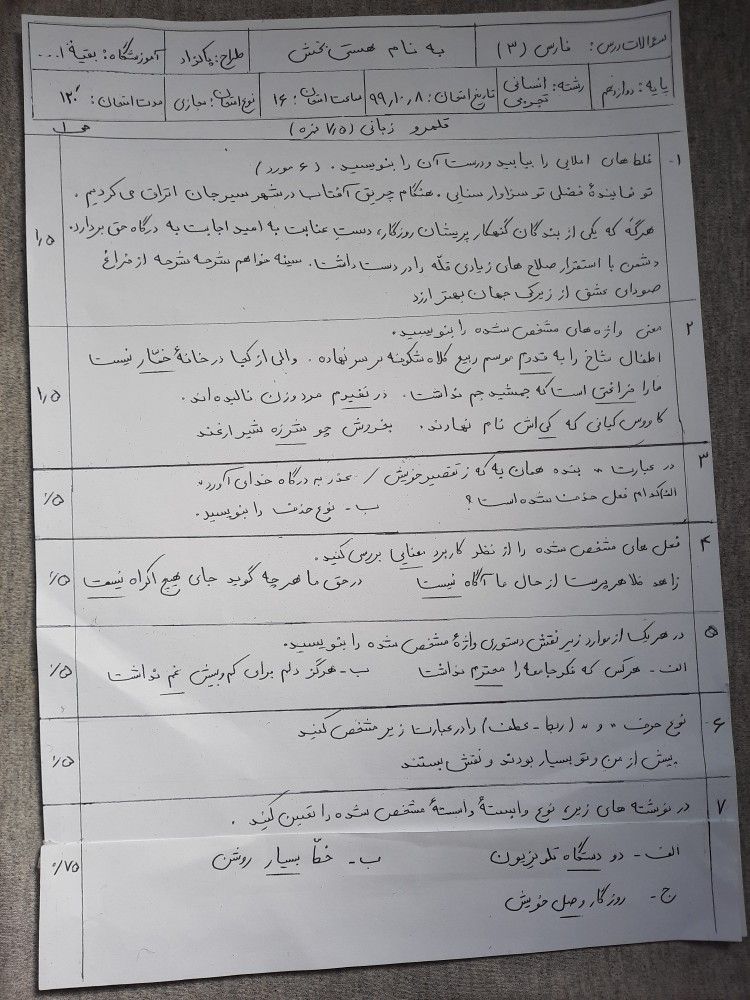 سؤالات درس: فارسی (۳) به نام هستی بخش طراح: پاکزاد آموزشگاه: بقیة ا...
پایه: دوازدهم رشته: انسانی تجربی تاریخ امتحان: ۹۹،۱۰،۸ ساعت امتحان: ۱۶ نوع امتحان: مجازی مدت امتحان: ۱۲۰
قلمرو زبانی (۷/۵ نمره)
۱- غلط های املایی را بیابید و درست آن را بنویسید. (۶ مورد)
تو نمایندهٔ فضلی تو سزاوار سنایی. هنگام چریق آفتاب در شهر سیرجان اتراق می کردیم.
هرگه که یکی از بندگان گنهکار پریشان روزگار، دست عنابت به امید اجابت به درگاه حق بردارد.
دشمن با استقرار صلاح های زیادی قلّه را در دست داشت. سینه خواهم شرحه شرحه از فراغ ۱/۵
صودای عشق از زیرکی جهان بهتر ارزد
۲ معنی واژه های مشخص شده را بنویسید.
اطفال شاخ را به قدوم موسم ربیع کلاه شکوفه بر سر نهاده. والی از کجا در خانهٔ خمّار نیست
ما را فراغتی است که جمشید جم نداشت. در نفیرم مرد و زن نالیده اند. ۱/۵
کاووس کیانی که کی اش نام نهادند. بخروش چو شرزه شیر ارغند
۳ در عبارت « بنده همان به که ز تقصیر خویش / عذر به درگاه خدای آورد»
الف) کدام فعل حذف شده است؟ ب- نوع حذف را بنویسید. ۰/۵
۴ فعل های مشخص شده را از نظر کاربرد معنایی بررسی کنید.
زاهد ظاهرپرست از حال ما آگاه نیست در حق ما هر چه گوید جای هیچ اکراه نیست ۰/۵
۵ در هر یک از موارد زیر نقش دستوری واژهٔ مشخص شده را بنویسید.
الف- هرکس که فکر جامعه را محترم نداشت ب- هرگز دلم برای کم و بیش غم نداشت ۰/۵
۶- نوع حرف «و» (ربط - عطف) را در عبارت زیر مشخص کنید
پیش از من و تو بسیار بودند و نقش بستند ۰/۵
۷ در نوشته های زیر، نوع وابستهٔ وابستهٔ مشخص شده را تعیین کنید.
الف- دو دستگاه تلویزیون ب- خطّ بسیار روشن ۰/۷۵
ج- روزگار وصل خویش